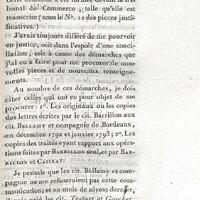 bunal de Commerce, telle qu'elle est
transcrite (sous le N°. 11 des pieces justi-
ficatives.)
J'avais toujours différé de me pourvoir
en justice, soit dans l'espoir d'une conci-
liation, soit à cause des démarches que
j'ai eu à faire pour me procurer de nou-
velles pieces et de nouveaux renseigne-
ments.
Au nombre de ces démarches, je dois
citer celles qui ont eu pour objet de me
procurer : 1°. Les originaux ou les copies
des lettres écrites par le cit. Barrillon aux
cit. BELLAMY et compagnie de Bordeaux,
en décembre 1792 et janvier 1793; 2°. Les
copies des traités ayant rapport aux opéra-
tions faites par BARRILLON seul, et par BAR-
RILLON et CAILLAT.
Je pensais que les cit. Bellamy et com-
pagnie ne me refuseraient pas cette com-
munication; et au mois de nivose dernier,
les cit. Testart et Gaucher